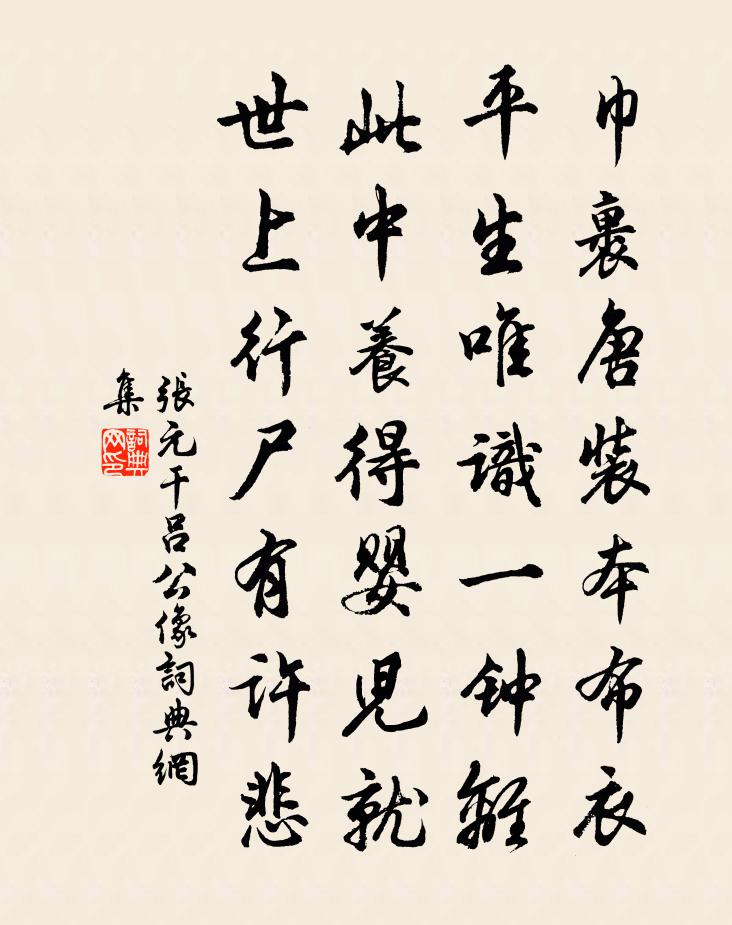 巾裹唐裝本布衣
平生唯識一钟離
此中養得嬰兒就
世上行尸有許悲
張元干吕公像詞典網
集
詞典網印